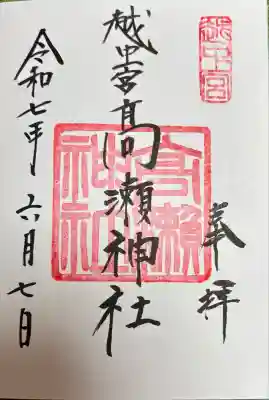 奉拝
越中宮
越中一宮高瀬神社
高瀬神社
令和七年六月七日